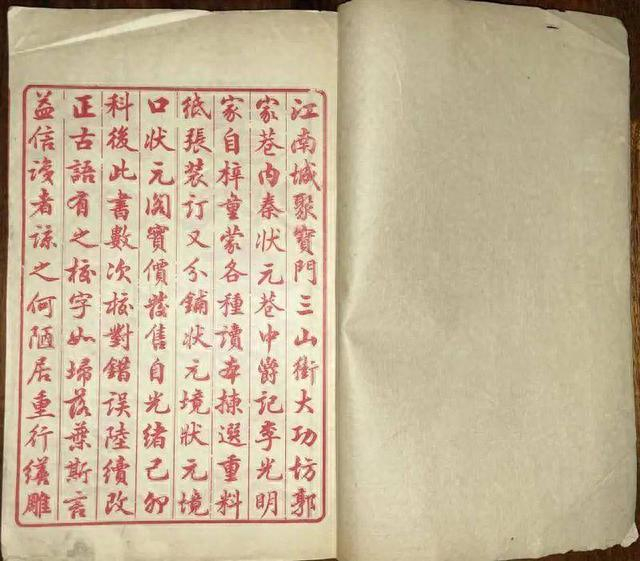 江南城聚寶門三山街大功坊郭
家巷内秦狀元巷中爵記李光明
家自梓童蒙各種讀本揀選重料
紙張裝訂又分鋪狀元境狀元境
口狀元閣實價發售自光緒己卯
科後此書數次校對錯誤陸續改
正古語有之校字如埽落葉斯言
益信者諒之何陋居重行雕